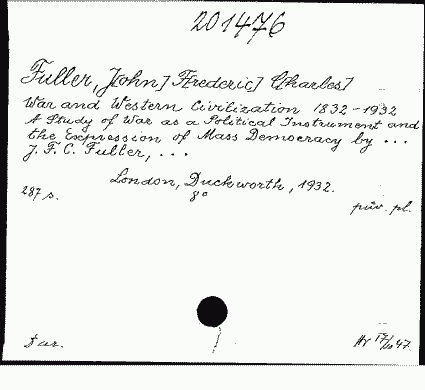 201476
Fuller, J[ohn] F[rederic] C[harles]
War and Western Civilization 1832-1932
A Study of War as a Political Instrument and
the Expression of Mass Democracy by ...
J. F. C. Fuller, ...
London, Duckworth, 1932.
287 s. 8°
pův. pl.
Dar.